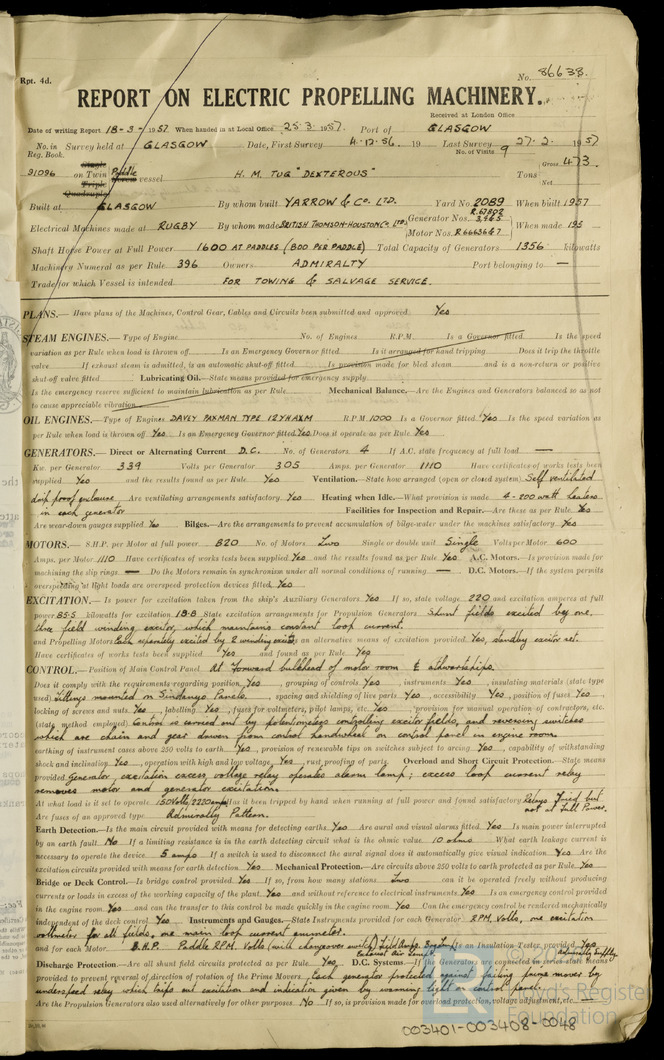 Rpt. 4d.
No. 86638.
REPORT ON ELECTRIC PROPELLING MACHINERY.
Received at London Office
Date of writing Report 18-3-1957 When handed in at Local Office 25·3·1957. Port of GLASGOW
No. in Survey held at GLASGOW Date, First Survey 4.12.56. 19 Last Survey 27.2. 1957
Reg. Book. No. of Visits 9
Single Paddle Gross 473
91096 on Twin Screw vessel H. M. TUG "DEXTEROUS" Tons
Triple Net
Quadruple
Built at GLASGOW By whom built YARROW & CO. LTD. Yard No. 2089 When built 1957
Electrical Machines made at RUGBY By whom made BRITISH THOMSON-HOUSTON Co. LTD. Generator Nos. When made 195
Motor Nos.
Shaft Horse Power at Full Power 1600 AT PADDLES (800 PER PADDLE) Total Capacity of Generators 1356 kilowatts
Machinery Numeral as per Rule 396 Owners ADMIRALTY Port belonging to —
Trade for which Vessel is intended FOR TOWING & SALVAGE SERVICE.
PLANS.—Have plans of the Machines, Control Gear, Cables and Circuits been submitted and approved Yes
STEAM ENGINES.—Type of Engine No. of Engines R.P.M. Is a Governor fitted Is the speed
variation as per Rule when load is thrown off Is an Emergency Governor fitted Is it arranged for hand tripping Does it trip the throttle
valve If exhaust steam is admitted, is an automatic shut-off fitted Is provision made for bled steam and is a non-return or positive
shut-off valve fitted Lubricating Oil.—State means provided for emergency supply
Is the emergency reserve sufficient to maintain lubrication as per Rule Mechanical Balance.—Are the Engines and Generators balanced so as not
to cause appreciable vibration
OIL ENGINES.—Type of Engines DAVEY PAXMAN TYPE 12YHAXM R.P.M 1000 Is a Governor fitted Yes Is the speed variation as
per Rule when load is thrown off Yes Is an Emergency Governor fitted Yes Does it operate as per Rule Yes
GENERATORS.—Direct or Alternating Current D.C. No. of Generators 4 If A.C. state frequency at full load —
Kw. per Generator 339 Volts per Generator 305 Amps. per Generator 1110 Have certificates of works tests been
supplied Yes and the results found as per Rule Yes Ventilation.—State how arranged (open or closed system) Self ventilated
drip proof enclosure Are ventilating arrangements satisfactory Yes Heating when Idle.—What provision is made 4-200 watt heaters
in each generator Facilities for Inspection and Repair.—Are these as per Rule Yes
Are wear-down gauges supplied Yes Bilges.—Are the arrangements to prevent accumulation of bilge-water under the machines satisfactory Yes
MOTORS.—S.H.P. per Motor at full power 820 No. of Motors Two Single or double unit Single Volts per Motor 600
Amps. per Motor 1110 Have certificates of works tests been supplied Yes and the results found as per Rule Yes A.C. Motors.—Is provision made for
machining the slip rings — Do the Motors remain in synchronism under all normal conditions of running — D.C. Motors.—If the system permits
overspeeding at light loads are overspeed protection devices fitted Yes
EXCITATION.—Is power for excitation taken from the ship's Auxiliary Generators Yes If so, state voltage 220 and excitation amperes at full
power 85.5 kilowatts for excitation 18.8 State excitation arrangements for Propulsion Generators Shunt fields excited by one,
three field winding exciter, which maintains constant loop current.
and Propelling Motors Each separately excited by 2 winding exciters Is an alternative means of excitation provided Yes, standby exciter set.
Have certificates of works tests been supplied Yes and found as per Rule Yes
CONTROL.—Position of Main Control Panel At forward bulkhead of motor room & athwartships.
Does it comply with the requirements regarding position, Yes, grouping of controls Yes, instruments Yes, insulating materials (state type
used) Fittings mounted on Sindanyo Panels, spacing and shielding of live parts Yes, accessibility Yes, position of fuses Yes
locking of screws and nuts Yes, labelling Yes, fuses for voltmeters, pilot lamps, etc. Yes, provision for manual operation of contractors, etc.
(state method employed) Control is carried out by potentiometers controlling exciter fields, and reversing switches
which are chain and gear driven from control handwheel on control panel in engine room.
earthing of instrument cases above 250 volts to earth Yes, provision of renewable tips on switches subject to arcing Yes, capability of withstanding
shock and inclination Yes, operation with high and low voltage Yes, rust proofing of parts Overload and Short Circuit Protection.—State means
provided Generator, excitation excess voltage relay operates alarm lamp; excess loop current relay
removes motor and generator excitation.
At what load is it set to operate Has it been tripped by hand when running at full power and found satisfactory Relays Tried but
not at Full Power.
Are fuses of an approved type Admiralty Pattern.
Earth Detection.—Is the main circuit provided with means for detecting earths Yes Are aural and visual alarms fitted Yes Is main power interrupted
by an earth fault No If a limiting resistance is in the earth detecting circuit what is the ohmic value 10 ohms What earth leakage current is
necessary to operate the device 5 amps If a switch is used to disconnect the aural signal does it automatically give visual indication Yes Are the
excitation circuits provided with means for earth detection Yes Mechanical Protection.—Are circuits above 250 volts to earth protected as per Rule Yes
Bridge or Deck Control.—Is bridge control provided Yes If so, from how many stations can it be freely operated without producing
currents or loads in excess of the working capacity of the plant Yes and without reference to electrical instruments Yes Is an emergency control provided
in the engine room Yes and can the transfer to this control be made quickly in the engine room Yes Can the emergency control be rendered mechanically
independent of the deck control Yes Instruments and Gauges.—State Instruments provided for each Generator RPM, Volts, one excitation
voltmeter for all fields, one main loop current ammeter.
and for each Motor B.H.P. Paddle RPM. Volts (with changeover switch) Field Amps. Is an Insulation Tester provided Yes
Admiralty Supply.
Discharge Protection.—Are all shunt field circuits protected as per Rule Yes D.C. Systems.—If the
provided to prevent reversal of direction of rotation of the Prime Movers Each generator protected against failing prime mover by
underspeed relay which trips out excitation and indication given by warning light on control panel.
Are the Propulsion Generators also used alternatively for other purposes No If so, is provision made for overload protection, voltage adjustment, etc. —
LR
Lloyd's Register
Foundation
003401-003408-0048